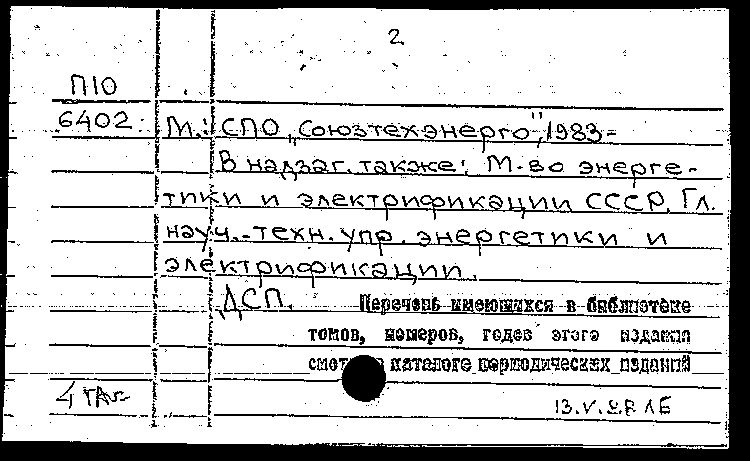 2
П10
6402 М.: СПО „Союзтехэнерго", 1983-
В надзаг. также: М-во энерге-
тики и электрификации СССР, Гл.
науч.-техн. упр. энергетики и
электрификации.
ДСП. Перечень имеющихся в библиотеке
томов, номеров, годов этого издания
смот в каталоге периодических изданий
4
13.V.